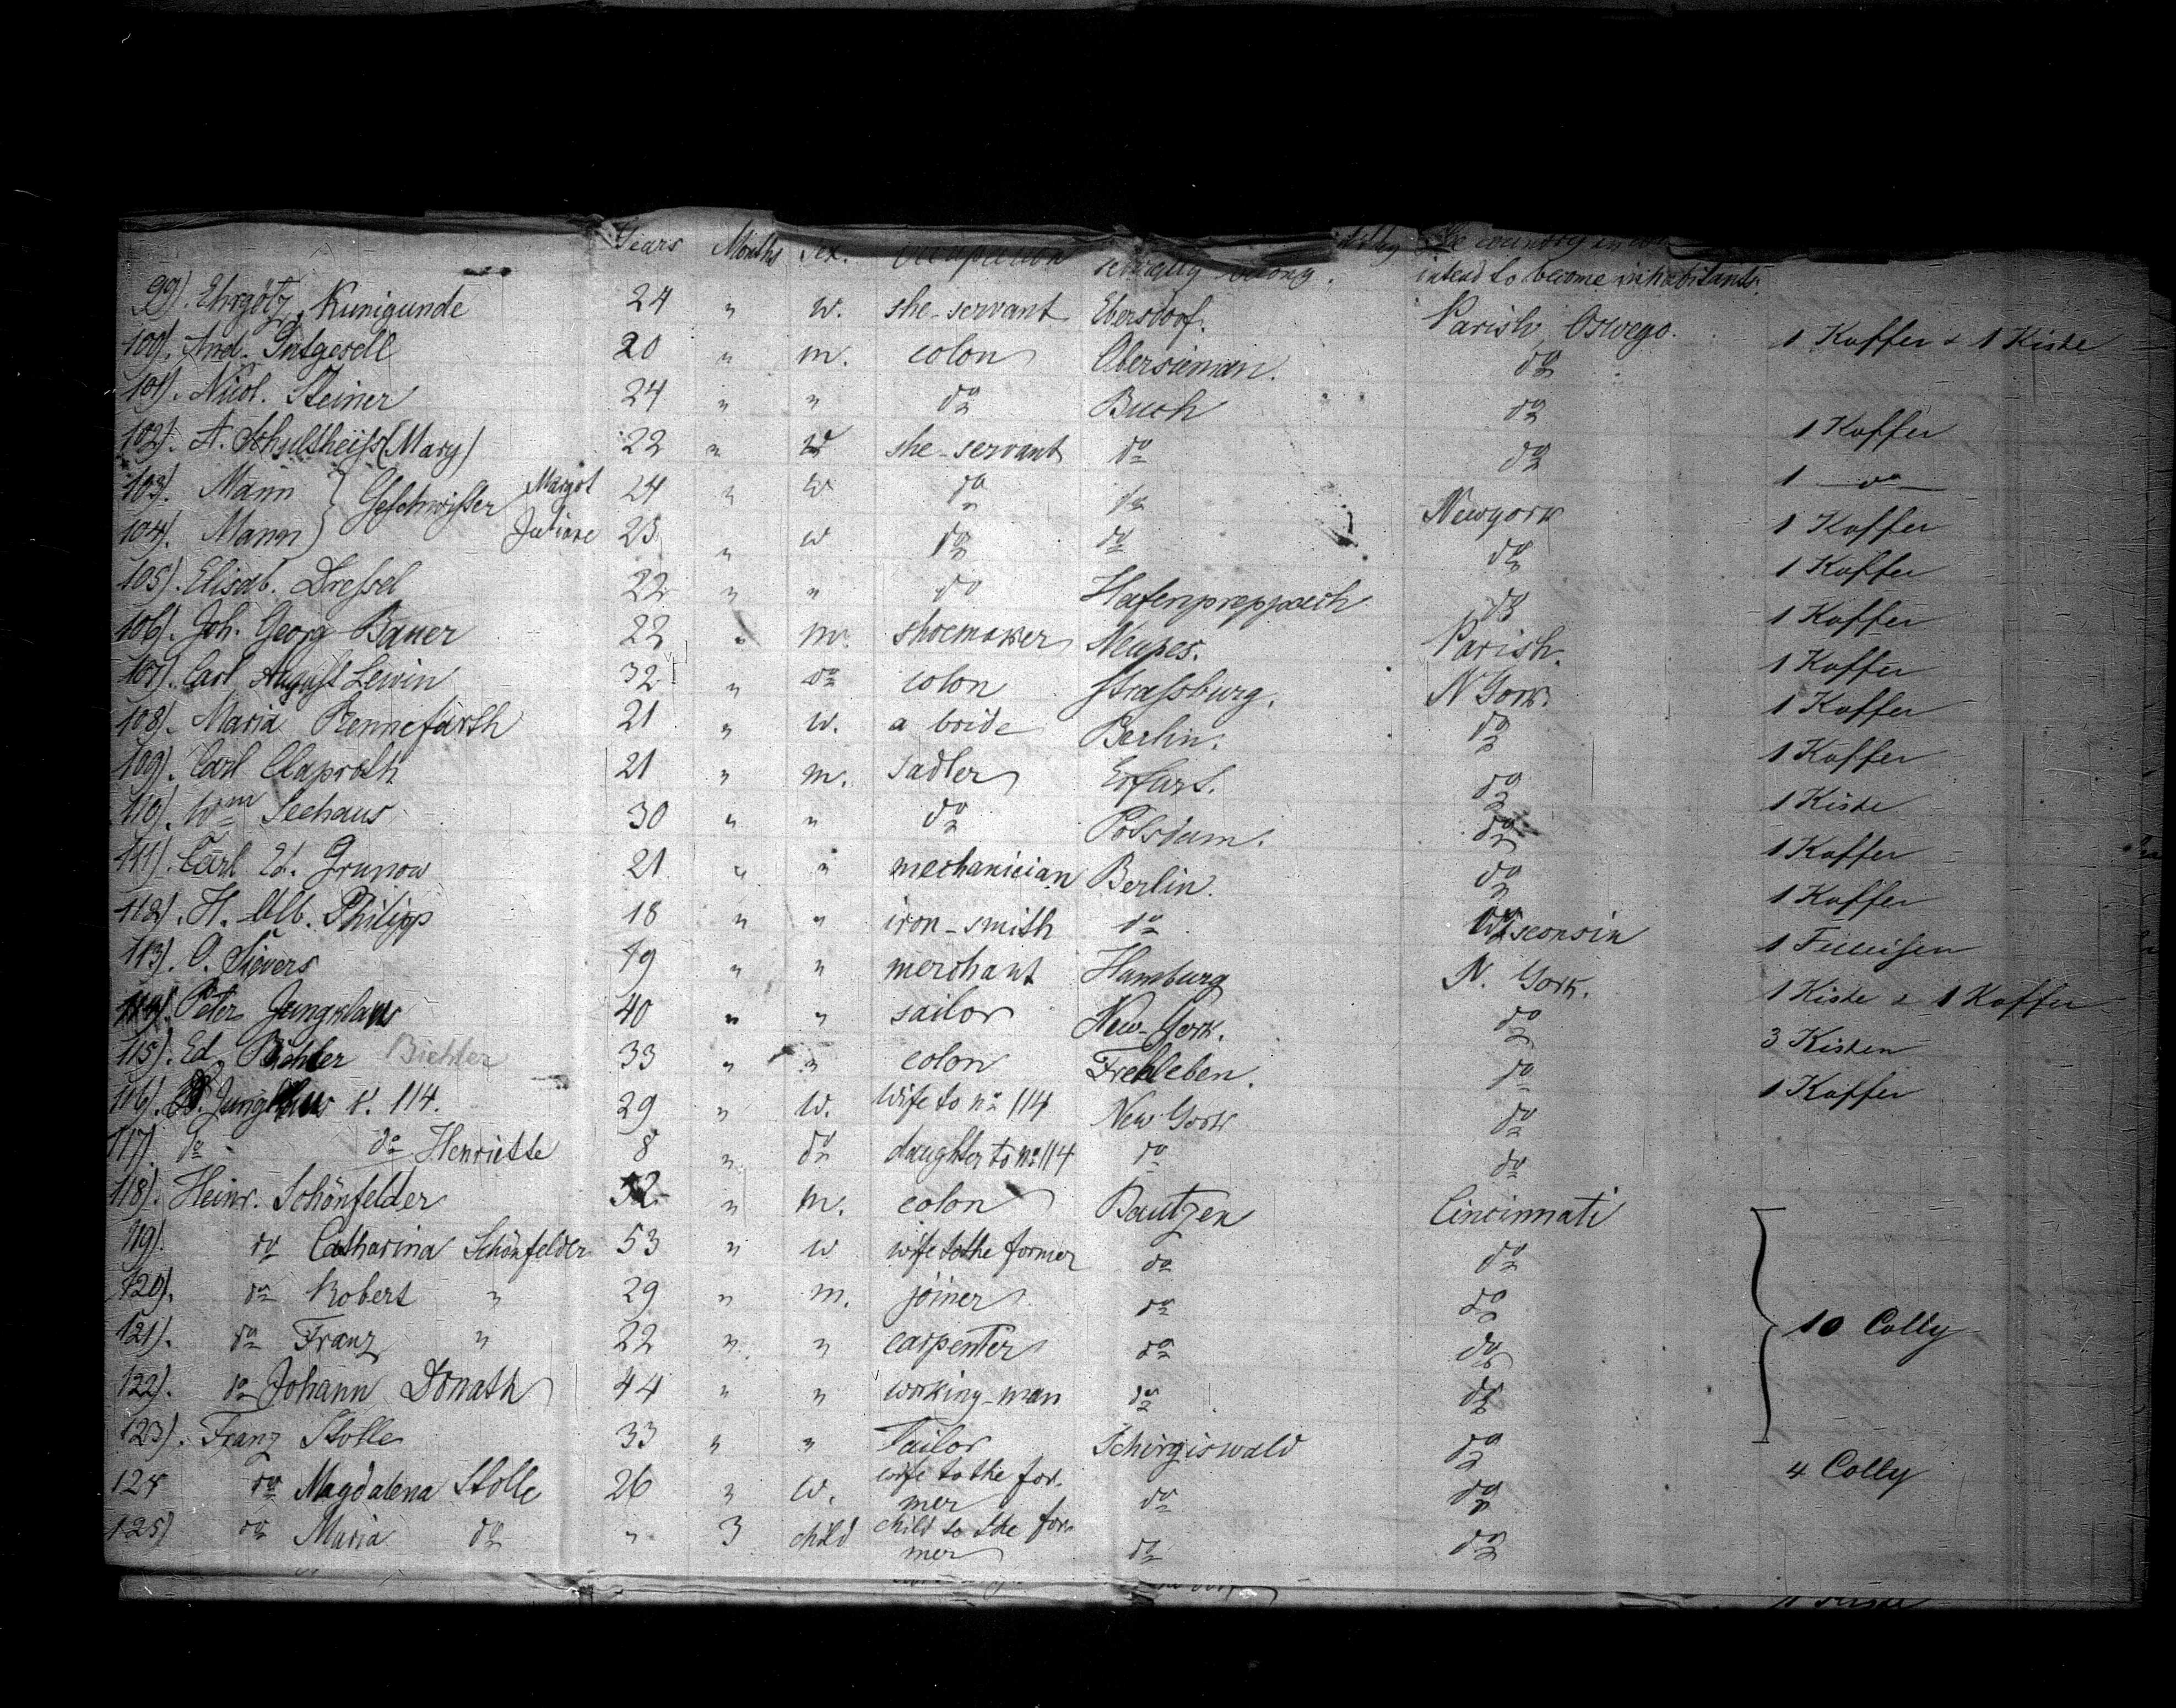 Years Months Sex. occupation severally belong. the country in
intend to become inhabitants.
99). Ehrgötz, Kunigunde 24 " w. she-servant Ebersdorf. Parish Oswego. 1 Koffer & 1 Kiste
100). And. Gutgesell 20 " m. colon Obersieman. do
101). Nicol. Steiner 24 " " do Buch do 1 Koffer
102). A. Schultheiss (Mary) 22 " w she-servant do do 1 do
103). Mann } Geschwister Margot 24 " w do do Newyork 1 Koffer
104). Mann } Juliane 23 " w do do do 1 Koffer
105). Elisab. Dressel 22 " " do Hafenpreppach do 1 Koffer
106). Joh. Georg Bauer 22 " m. shoemaker Neuses. Parish. 1 Koffer
107). Carl August Lewin 32 " do colon Strassburg. N York. 1 Koffer
108). Maria Rennefarth 21 " w. a bride Berlin. do 1 Koffer
109). Carl Claproth 21 " m. sadler Erfurt. do 1 Kiste
110). Wm Seehaus 30 " " do Potsdam. do 1 Koffer
111). Carl Ed. Grunow 21 " " mechanician Berlin. do 1 Koffer
112). H. Alb. Philipp 18 " " iron-smith do Wisconsin 1 Felleisen
113). O. Sievers 19 " " merchant Hamburg N. York. 1 Kiste & 1 Koffer
114). Peter Jungklaus 40 " " sailor New-York. do 3 Kisten
115). Ed. Bichter Bichter 33 " " colon Frekleben. do 1 Koffer
116). Jungklaus v. 114. 29 " w. wife to no 114 New York do
117) do do Henriette 8 " do daughter to no 114 do do
118). Heinr. Schönfelder 52 " m. colon Bautzen Cincinnati
119). do Catharina Schönfelder 53 " w wife to the former do do
120). do Robert " 29 " m. joiner do do
121). do Franz " 22 " " carpenter do do 10 Colly
122). do Johann Donath 44 " " working-man do do
123). Franz Stolle 33 " " Tailor Schirgiswald do 4 Colly
124 do Magdalena Stolle 26 " w. wife to the former do do
125) do Maria do " 3 child child to the former do do